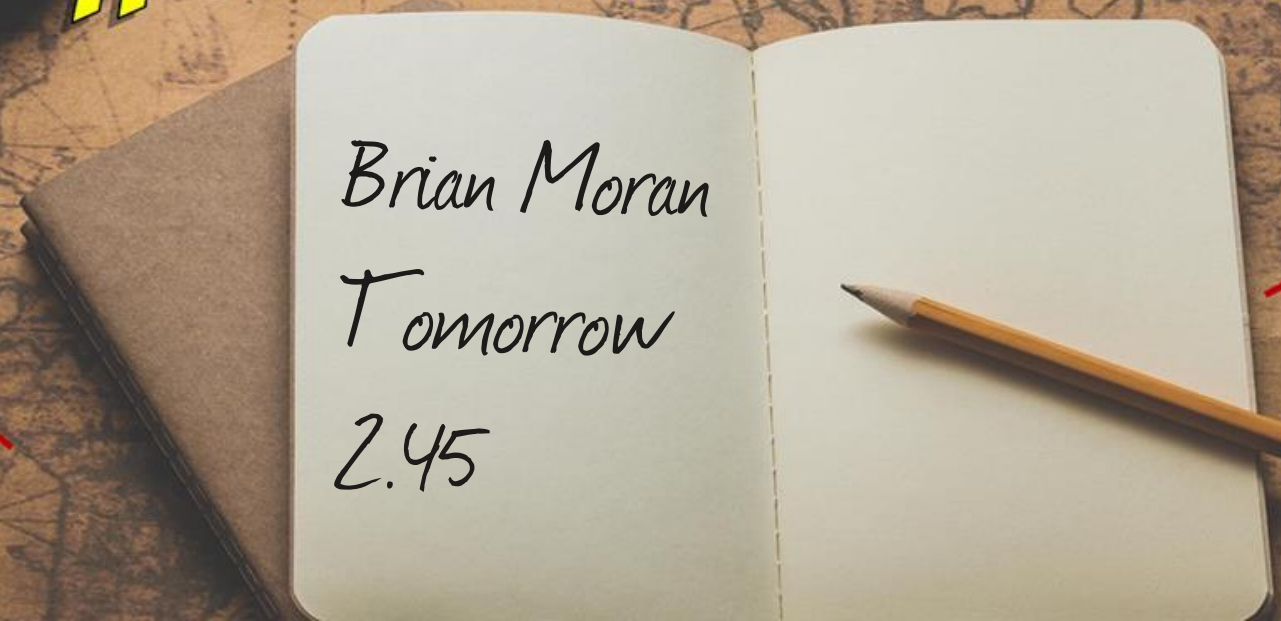 Brian Moran
Tomorrow
2.45